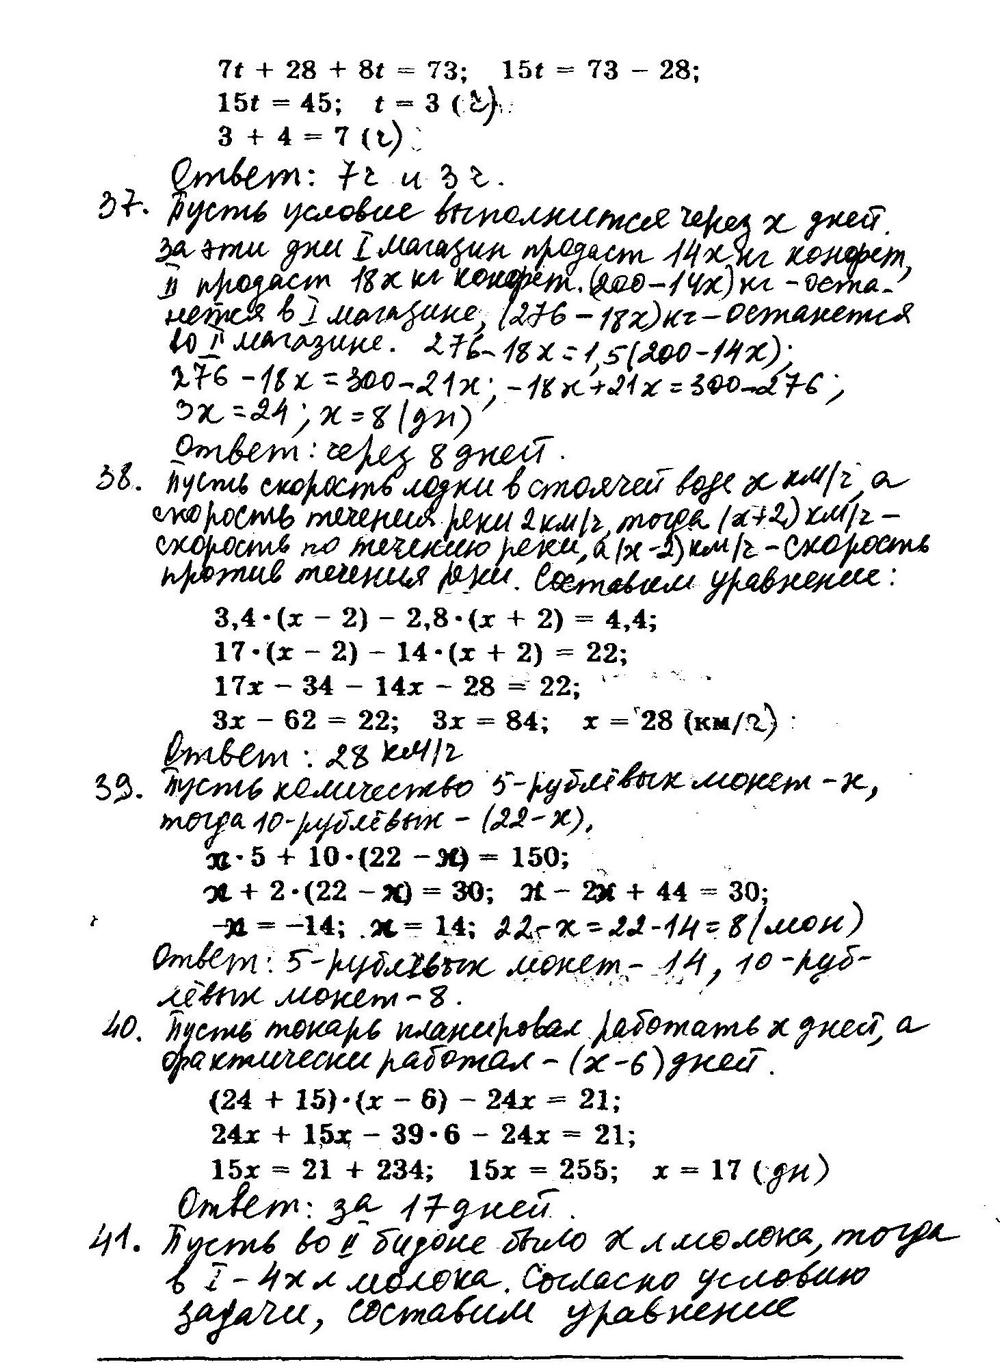 7t + 28 + 8t = 73; 15t = 73 − 28;
15t = 45; t = 3 (ч).
3 + 4 = 7 (ч).
Ответ: 7ч и 3ч.
37. Пусть условие выполнится через x дней.
За эти дни I магазин продаст 14x кг конфет,
II продаст 18x кг конфет. (200−14x) кг − оста-
нется в I магазине, (276−18x) кг − останется
во II магазине. 276−18x = 1,5(200−14x);
276−18x = 300−21x; −18x+21x = 300−276;
3x = 24; x = 8 (дн)
Ответ: через 8 дней.
38. Пусть скорость лодки в стоячей воде x км/ч, а
скорость течения реки 2 км/ч, тогда (x+2) км/ч −
скорость по течению реки, а (x−2) км/ч − скорость
против течения реки. Составим уравнение:
3,4·(x − 2) − 2,8·(x + 2) = 4,4;
17·(x − 2) − 14·(x + 2) = 22;
17x − 34 − 14x − 28 = 22;
3x − 62 = 22; 3x = 84; x = 28 (км/ч)
Ответ: 28 км/ч
39. Пусть количество 5-рублёвых монет − x,
тогда 10-рублёвых − (22−x).
x·5 + 10·(22 − x) = 150;
x + 2·(22 − x) = 30; x − 2x + 44 = 30;
−x = −14; x = 14; 22−x = 22−14 = 8 (мон)
Ответ: 5-рублёвых монет − 14, 10-руб-
лёвых монет − 8.
40. Пусть токарь планировал работать x дней, а
фактически работал − (x−6) дней.
(24 + 15)·(x − 6) − 24x = 21;
24x + 15x − 39·6 − 24x = 21;
15x = 21 + 234; 15x = 255; x = 17 (дн)
Ответ: за 17 дней.
41. Пусть во II бидоне было x л молока, тогда
в I − 4x л молока. Согласно условию
задачи, составим уравнение